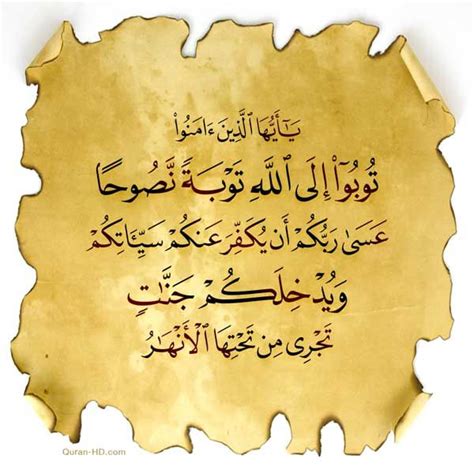 يَٰٓأَيُّهَا ٱلَّذِينَ ءَامَنُوا۟
تُوبُوٓا۟ إِلَى ٱللَّهِ تَوْبَةً نَّصُوحًا
عَسَىٰ رَبُّكُمْ أَن يُكَفِّرَ عَنكُمْ سَيِّـَٔاتِكُمْ
وَيُدْخِلَكُمْ جَنَّٰتٍ
تَجْرِى مِن تَحْتِهَا ٱلْأَنْهَٰرُ
Quran-HD.com